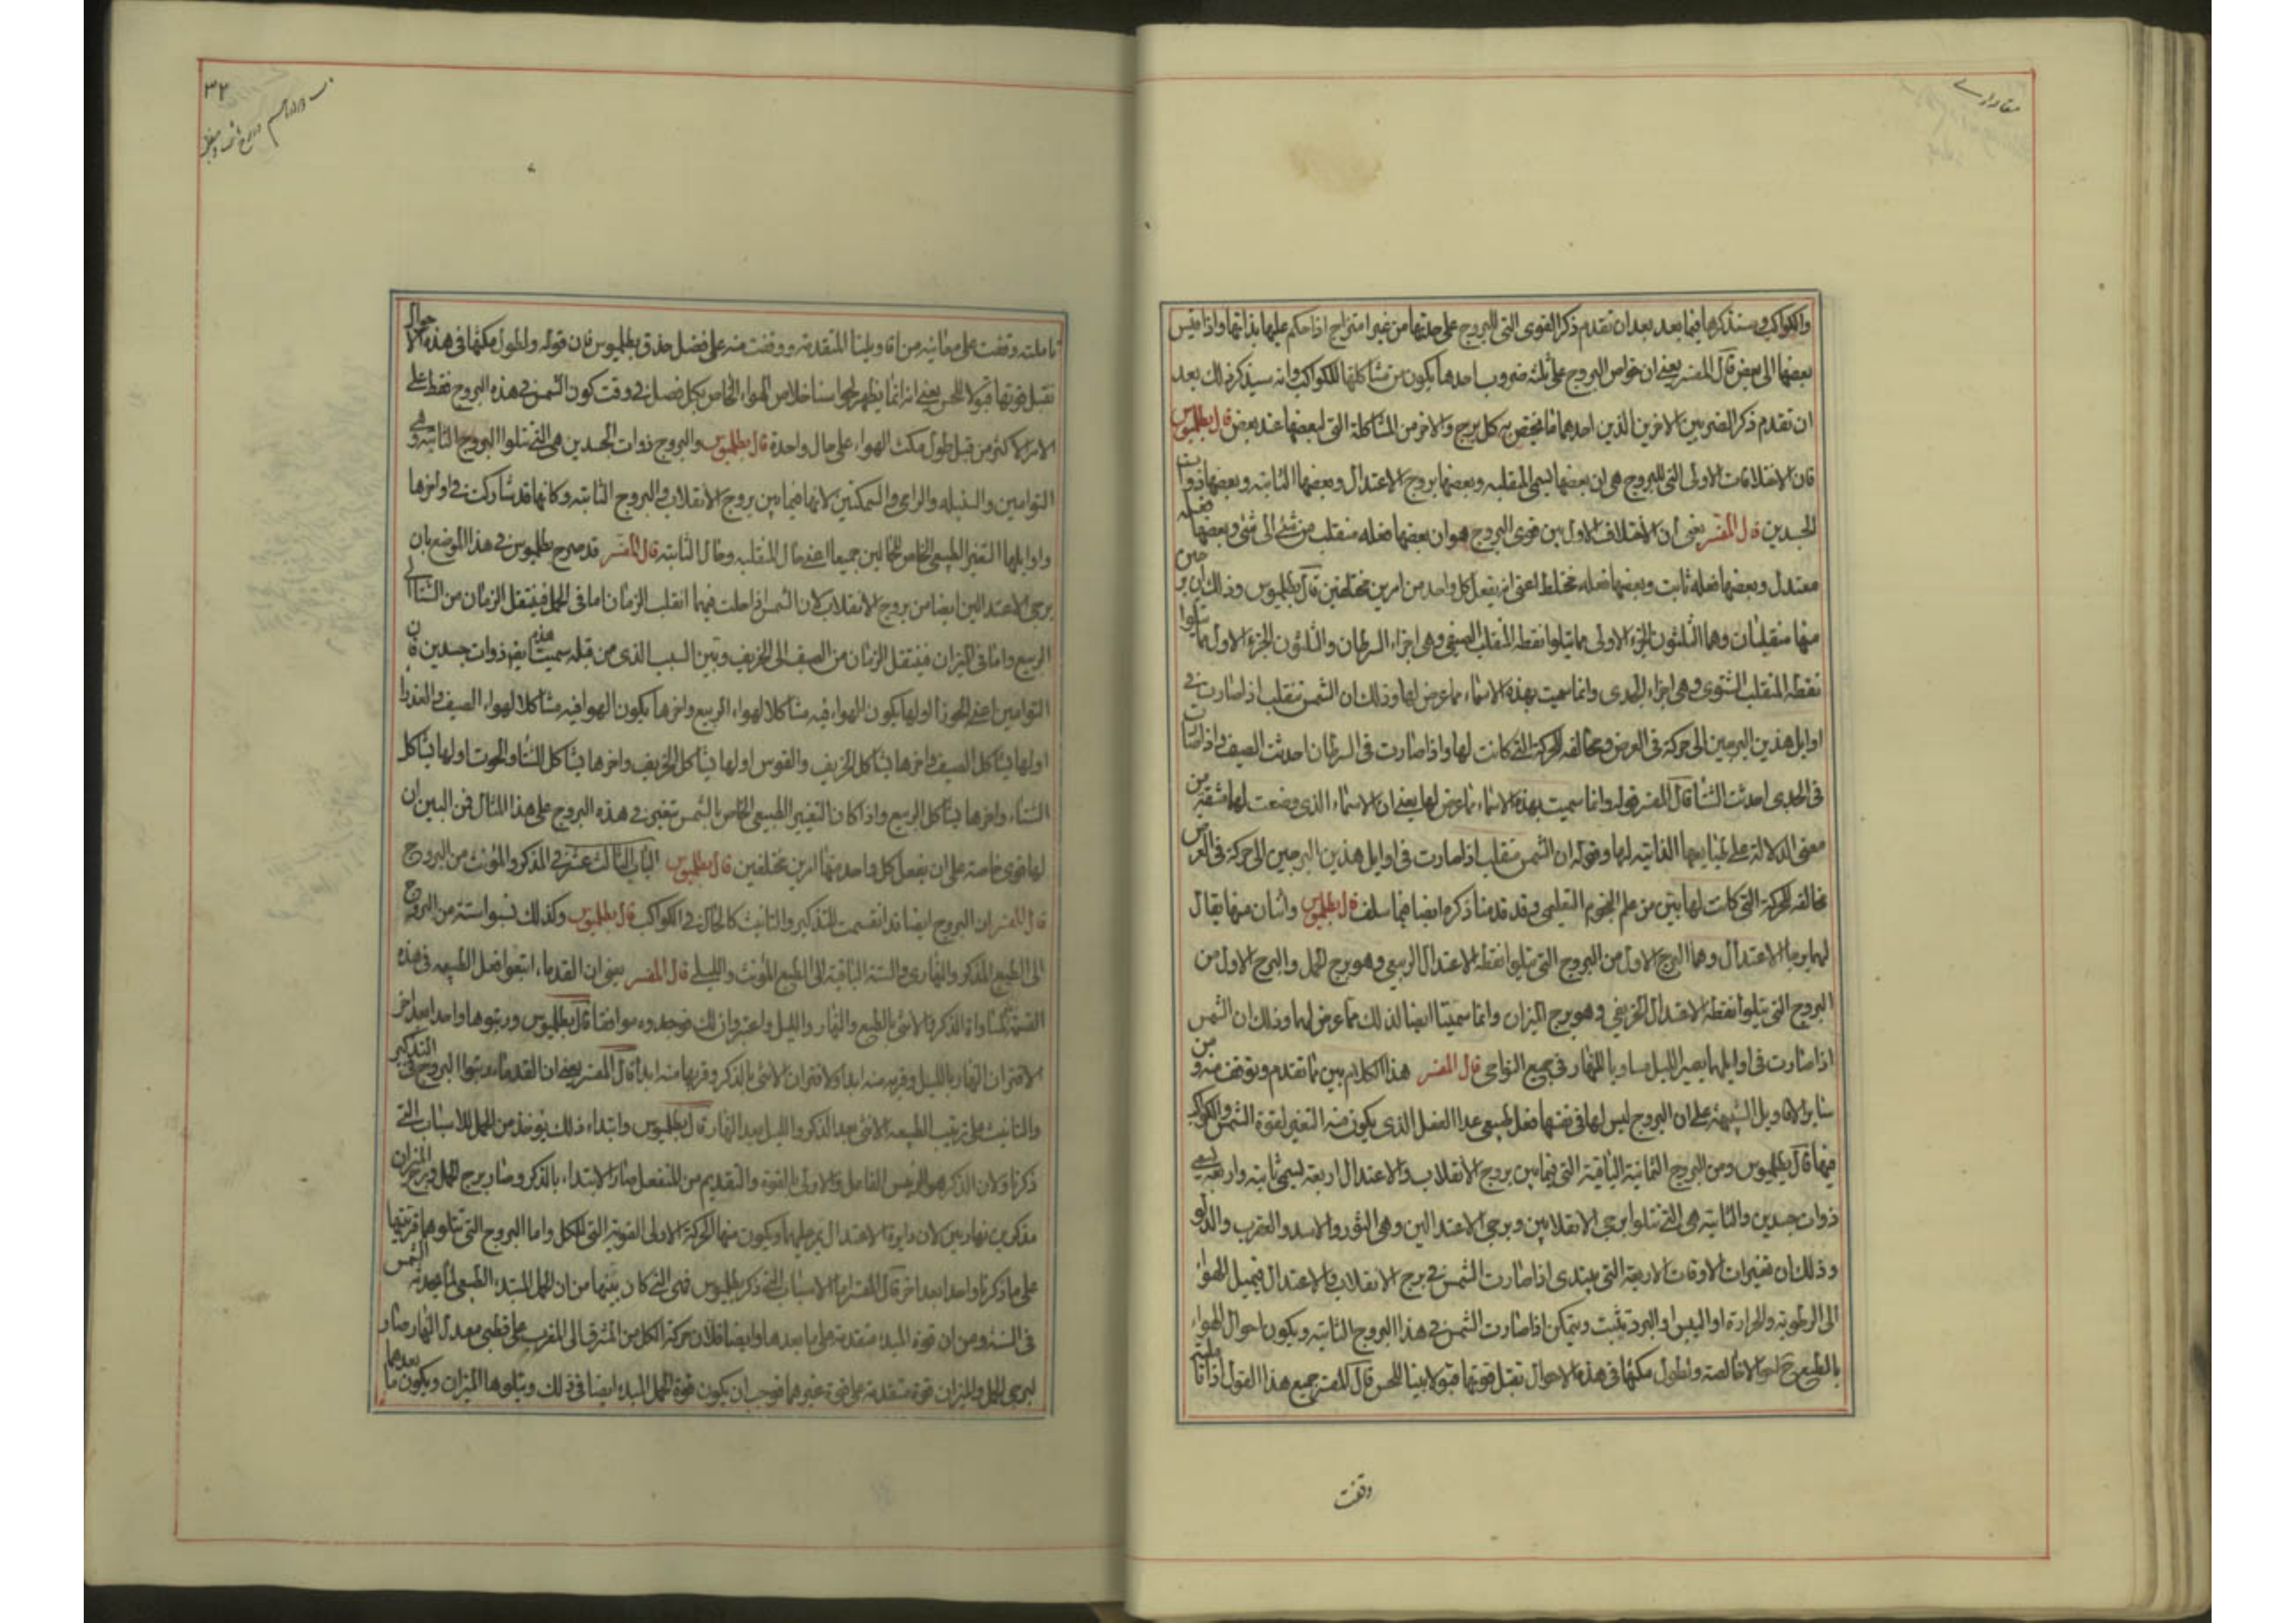 مقادارے
والكواكب وسنذكرها فيما بعد بعد ان تقدم ذكر القوى التى للبروج على حدتها من غير امتزاج اذا حكم عليها بذاتها واذا قيس
بعضها الى بعض قال المفسر يعنى ان خواص البروج على ثلثه ضروب احدها يكون من مشاكلتها للكواكب وانه سيذكر ذلك بعد
ان تقدم ذكر الضربين الاخرين الذين احدهما ما يختص به كل برج والاخر من المشاكلة التى لبعضها عند بعض قال بطلميوس
فان الاختلافات الاولى التى للبروج هى ان بعضها يسمى المنقلبه وبعضها بروج الاعتدال وبعضها الثابته وبعضها ذوات
الجسدين قال المفسر يعنى ان الاختلاف الاول بين قوى البروج هو ان بعضها فعله منقلب من شئ الى شئ وبعضها فعله
معتدل وبعضها فعله ثابت وبعضها فعله مختلط اعنى انه يفعل كل واحد من امرين مختلفين قال بطلميوس وذلك ان برجين
منها منقلبان وهما الثلثون الجزء الاولى مما يتلوا نقطه المنقلب الصيفى وهى اجزاء السرطان والثلثون الجزء الاول مما يتلوا
نقطه المنقلب الشتوى وهى اجزاء الجدى وانما سميت بهذه الاسماء مما عرض لها وذلك ان الشمس تنقلب اذا صارت فى
اوايل هذين البرجين الى حركة فى العرض مخالفه للحركة التى كانت لها واذا صارت فى السرطان احدثت الصيف واذا صارت
فى الجدى احدثت الشتا قال المفسر قوله وانما سميت بهذه الاسماء مما عرض لها يعنى ان الاسماء الذى وضعت لها مشتقه من
معنى الدلالة على طبايعها الذاتيه لها وقوله ان الشمس تنقلب اذا صارت فى اوايل هذين البرجين الى حركة فى العرض
مخالفه للحركة التى كانت لها بين من علم النجوم التعليمى وقد قدمنا ذكره ايضا فيما سلف قال بطلميوس واثنان منها يقال
لهما برجا الاعتدال وهما البرج الاول من البروج التى يتلوا نقطه الاعتدال الربيعى وهو برج الحمل والبرج الاول من
البروج التى يتلوا نقطه الاعتدال الخريفى وهو برج الميزان وانما سميتا ايضا لذلك مما عرض لهما وذلك ان الشمس
اذا صارت فى اوايلهما يصير الليل مساويا للنهار فى جميع النواحى قال المفسر هذا الكلام بين مما تقدم وتوقف منه ومن
ساير الاقاويل الشبيهة على ان البروج ليس لها فى نفسها فعل طبيعى عدا الفعل الذى يكون منه التغير لقوة الشمس والكواكب
فيها قال بطلميوس ومن البروج الثمانية الباقية التى فيما بين بروج الانقلاب والاعتدال اربعة تسمى ثابته واربعه تسمى
ذوات جسدين والثابته هى التى تتلوا برجى الانقلابين وبرجى الاعتدالين وهى الثور والاسد والعقرب والدلو
وذلك ان تغيرات الاوقات الاربعة التى يبتدى اذا صارت الشمس فى برج الانقلاب والاعتدال فيميل الهواء
الى الرطوبة والحرارة او اليبس او البرد تثبت ويتمكن اذا صارت الشمس فى هذا البروج الثابته ويكون احوال الهواء
بالطبع ح لهوا الاخالصة ولطول مكثها فى هذه الاحوال تقبل قوتها قبولا بينا للحس قال المفسر جميع هذا القول اذا تاملته
وقفت
٣٢
تاملته وقفت على معانيه من اقاويلنا المتقدمة ووقفت منه على فضل حذق بطلميوس فان قوله ولطول مكثها فى هذه الاحوال
تقبل قوتها قبولا للحس يعنى انه انما يظهر لحواسنا خلاص الهواء الخاص بكل فصل فى وقت كون الشمس فى هذه البروج فقط على
الامر الاكثر من قبل طول مكث الهواء على حال واحدة قال بطلميوس والبروج ذوات الجسدين هى التى تتلوا البروج الثابته وهى
التوامين والسنبله والرامى والسمكتين لانها فيما بين بروج الانقلاب والبروج الثابته وكانها قد شاركت فى اواخرها
واوايلها التغير الطبيعى الخاص للحالين جميعا اعنى حال المنقلبه وحال الثابته قال المفسر قد صرح بطلميوس فى هذا الموضع بان
برجى الاعتدالين ايضا من بروج الانقلاب لان الشمس اذا حلت فيهما انقلب الزمان اما فى الحمل فينتقل الزمان من الشتا الى
الربيع واما فى الميزان فينتقل الزمان من الصيف الى الخريف وتبين السبب الذى من قبله سميت هذه ايضا ذوات جسدين فان
التوامين اعنى الجوزا اولها يكون الهواء فيه مشاكلا لهواء الربيع واخرها يكون الهوا فيه مشاكلا لهواء الصيف والعذرا
اولها يشاكل الصيف واخرها يشاكل الخريف والقوس اولها يشاكل الخريف واخرها يشاكل الشتاء والحوت اولها يشاكل
الشتاء واخرها يشاكل الربيع واذا كان التغيير الطبيعى الخاص بالشمس يتغير فى هذه البروج على هذا المثال فمن البين ان
لها قوى خاصة على ان يفعل كل واحد منها امرين مختلفين قال بطلميوس الباب الثالث عشر فى المذكر والمؤنث من البروج
قال المفسر ان البروج ايضا قد انقسمت للتذكير والتانيث كالحال فى الكواكب قال بطلميوس وكذلك نسبوا ستة من البروج
الى الطبيع المذكر والنهارى والستة الباقية الى الطبيع المؤنث والليلى قال المفسر يعنى ان القدماء اتبعوا فعل الطبيعه فى هذه
القسمة لمساواة الذكر والانثى بالطبع والنهار والليل واعتبروا ذلك فوجدوه موافقا قال بطلميوس ورتبوها واحدا بعد اخر
لاقتران النهار بالليل وقربه منه ابدا ولاقتران الانثى بالذكر وقربها منه ابدا قال المفسر يعنى ان القدما رتبوا البروج فى التذكير
والتانيث على ترتيب الطبيعه الانثى بعد الذكر والليل بعد النهار قال بطلميوس وابتداء ذلك يؤخذ من الحمل للاسباب التى
ذكرنا ولان الذكر هو الرئيس الفاعل والاولى بالقوة والتقديم من المنفعل صار الابتداء بالذكر وصار برج الحمل وبرج الميزان
مذكرين نهاريين لان دايرة الاعتدال يمر عليهما ويكون منها الحركة الاولى القوية التى للكل واما البروج التى تتلوهما فترتيبها
على ما ذكرنا واحدا بعد اخر قال المفسر اما الاسباب التى ذكر بطلميوس فهى التى كان بينها من ان الحمل المبتدء الطبيعى لما يحدثه الشمس
فى السنه ومن ان قوة المبدء متقدمة على ما بعدها وايضا فلان حركة الكل من المشرق الى المغرب على قطبى معدل النهار صار
لبرجى الحمل والميزان قوة متقدمة على قوة غيرهما فوجب ان يكون قوة الحمل المبدء ايضا فى ذلك ويتلوها الميزان ويكون ما بعدهما